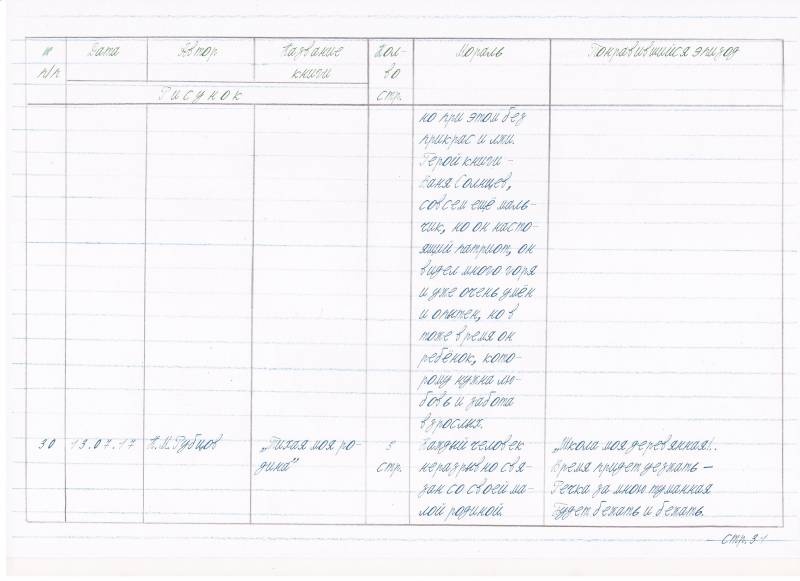 № Дата Автор Название Кол- Мораль Понравившийся эпизод
п/п книги во
Рисунок стр.
но при этом без
прикрас и лжи.
Герой книги -
Ваня Солнцев,
совсем ещё маль-
чик, но он насто-
ящий патриот, он
видел много горя
и уже очень умён
и опытен, но в
тоже время он
ребёнок, кото-
рому нужна лю-
бовь и забота
взрослых.
30 13.07.17 Н.М.Рубцов „Тихая моя ро- 5 Каждый человек „Школа моя деревянная!..
дина" стр. неразрывно свя- Время придет уезжать –
зан со своей ма- Речка за мною туманная
лой родиной. Будет бежать и бежать.
стр. 31